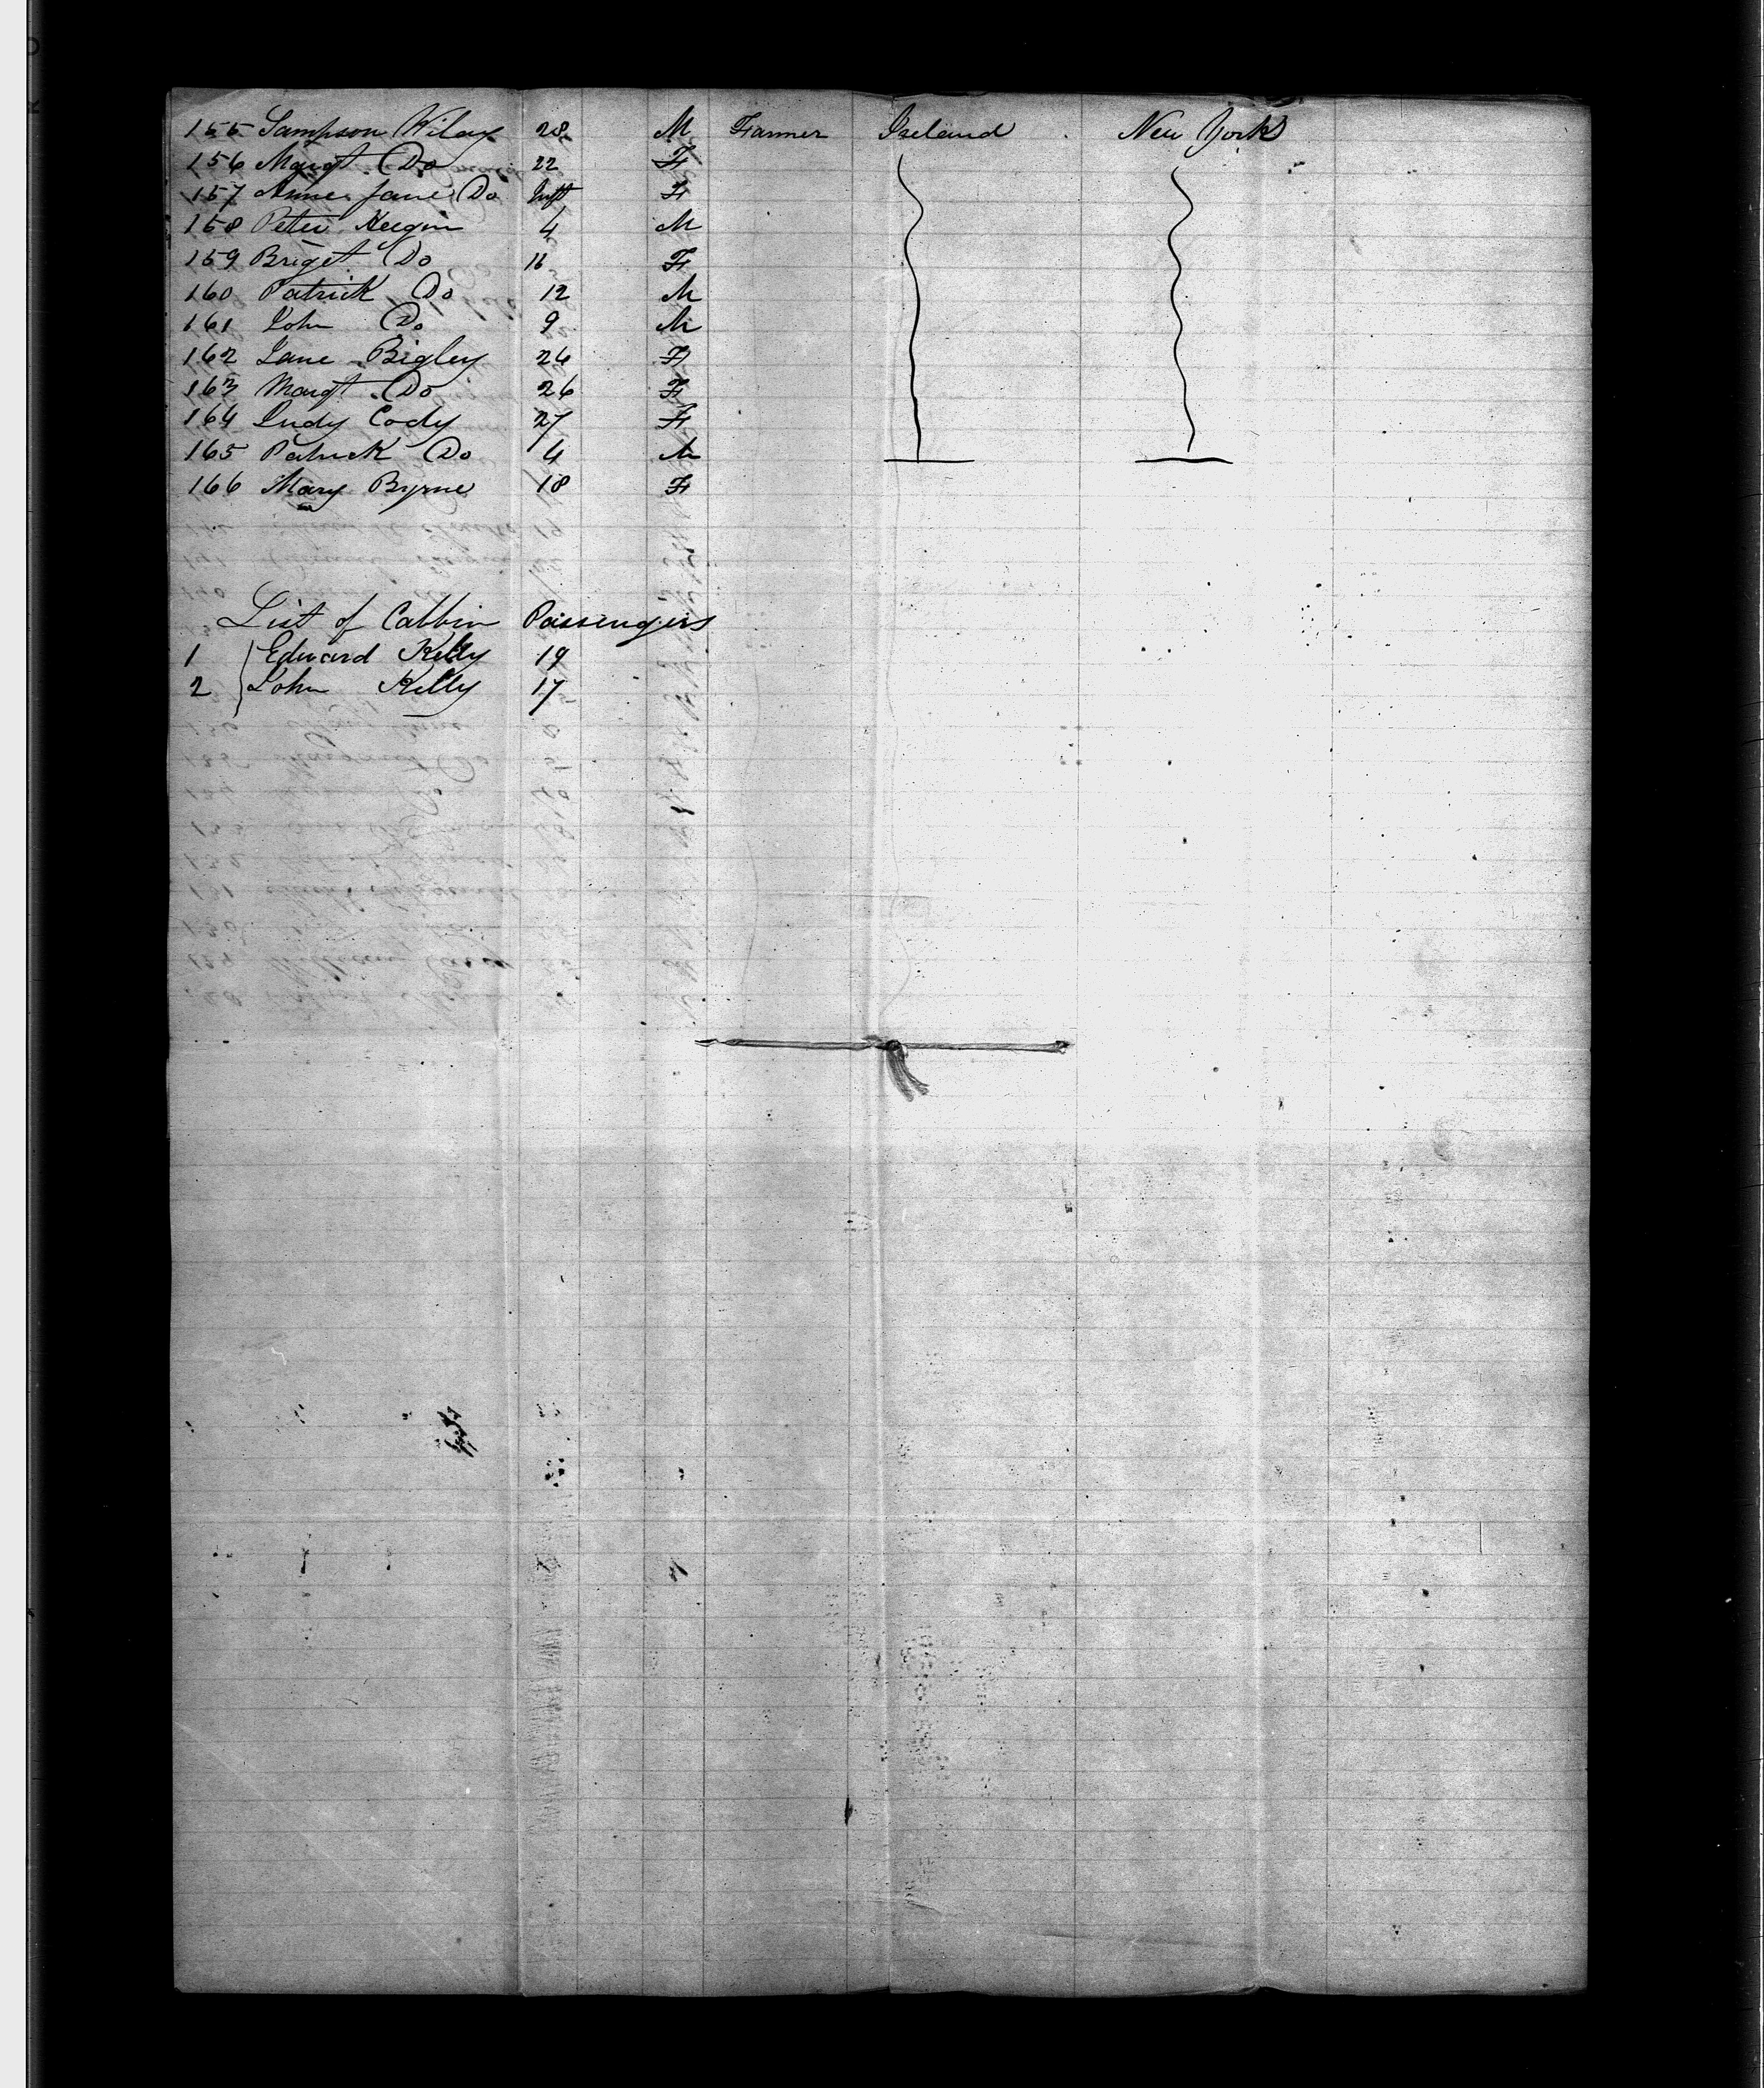 155 Sampson Wiley 28 M Farmer Ireland New York
156 Margt Do 22 F
157 Anne Jane Do Inft F
158 Peter Keegin 4 M
159 Briget Do 16 F
160 Patrick Do 12 M
161 John Do 9 M
162 Jane Bigley 26 F
163 Margt Do 26 F
164 Judy Cody 27 F
165 Patrick Do 4 M
166 Mary Byrne 18 F
List of Cabbin Passengers
1 Edward Kelly 19
2 John Kelly 17